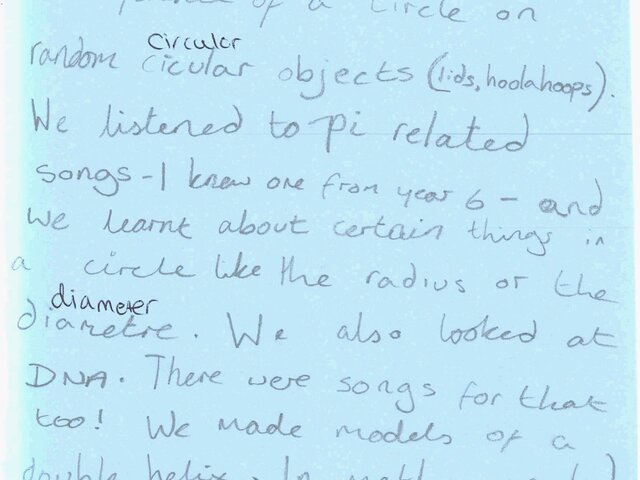 of a circle on
circular
random cicular objects (lids, hoolahoops).
We listened to pi related
songs - I knew one from year 6 - and
we learnt about certain things in
a circle like the radius or the
diameter
diametre. We also looked at
DNA. There were songs for that
too! We made models of a
double helix. In